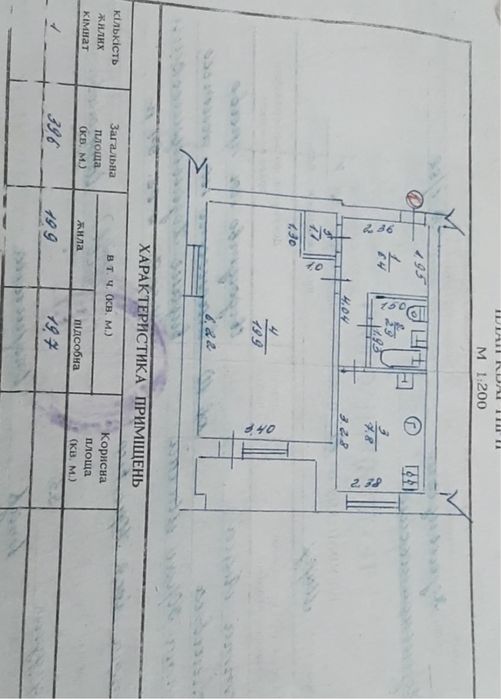 М 1:200
1
2.36
1
6.4
1.95
5
1.1
1.30
1.0
1.50
2
2.9
1.95
4.04
4
19.9
6.22
3
7.8
3.28
Г
3.40
2.38
ХАРАКТЕРИСТИКА ПРИМІЩЕНЬ
кількість
жилих
кімнат
Загальна
площа
(кв. м.)
в т. ч. (кв. м.)
жила
підсобна
Корисна
площа
(кв. м.)
1
39.6
19.9
19.7